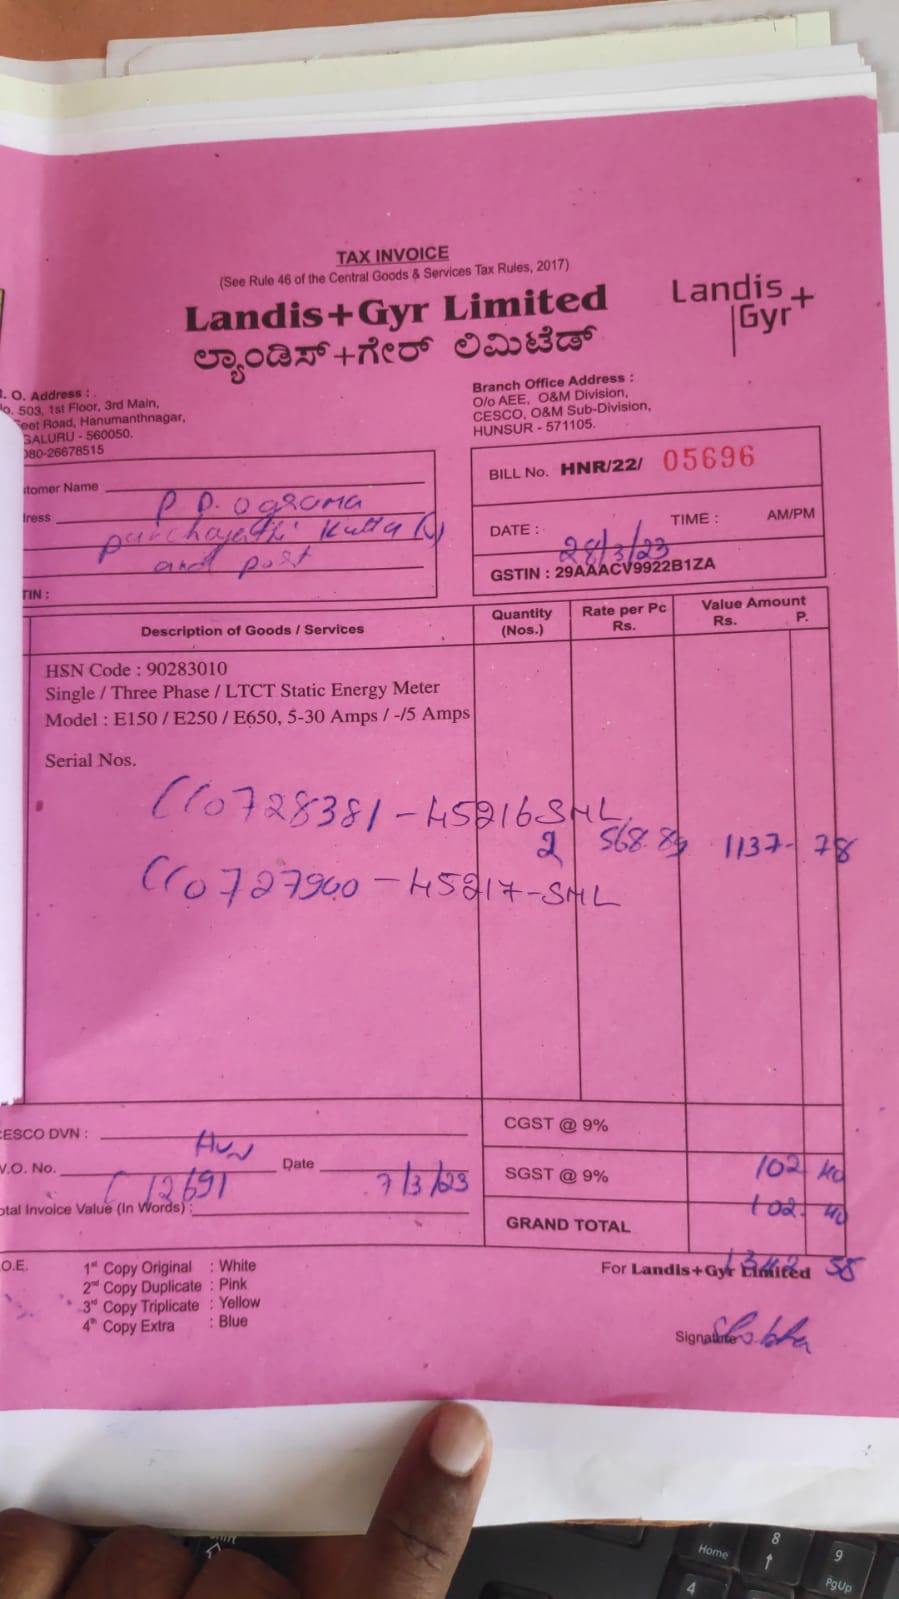 TAX INVOICE
(See Rule 46 of the Central Goods & Services Tax Rules, 2017)
Landis+Gyr Limited
ಲ್ಯಾಂಡಿಸ್+ಗೇರ್ ಲಿಮಿಟೆಡ್
Landis
Gyr+
. O. Address :
o. 503, 1st Floor, 3rd Main,
eet Road, Hanumanthnagar,
GALURU - 560050.
080-26678515
Branch Office Address :
O/o AEE, O&M Division,
CESCO, O&M Sub-Division,
HUNSUR - 571105.
BILL No. HNR/22/ 05696
tomer Name
P D. ograma
ress
panchayathi Kutta
and post
TIN :
DATE : 28/3/23 TIME : AM/PM
GSTIN : 29AAACV9922B1ZA
Description of Goods / Services Quantity (Nos.) Rate per Pc Rs. Value Amount Rs. P.
HSN Code : 90283010
Single / Three Phase / LTCT Static Energy Meter
Model : E150 / E250 / E650, 5-30 Amps / -/5 Amps
Serial Nos.
0728381-45216 SML
2 568.89 1137- 78
45217-SML
CESCO DVN :
Hun
V.O. No. 12691 Date 7/3/23
otal Invoice Value (In Words) :
CGST @ 9%
102 40
SGST @ 9%
102. 40
GRAND TOTAL
1342 58
.O.E.
1st Copy Original : White
2nd Copy Duplicate : Pink
3rd Copy Triplicate : Yellow
4th Copy Extra : Blue
For Landis+Gyr Limited
Signature Shobha
Home
8
9
PgUp
4